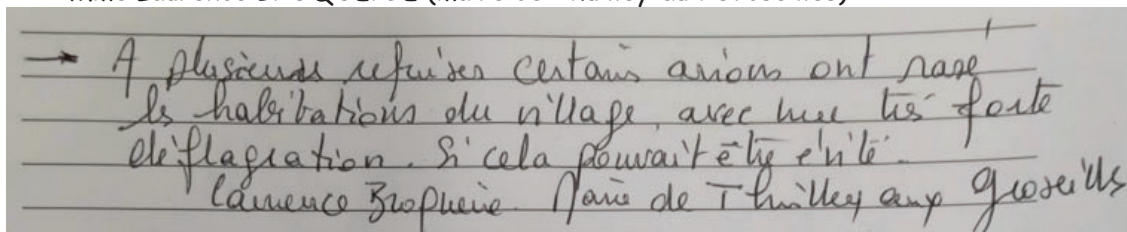 → A plusieurs reprises certains avions ont rasé
les habitations du village, avec une très forte
déflagration. Si cela pouvait être évité.
Laurence Maire de Thuilley aux Groseilles